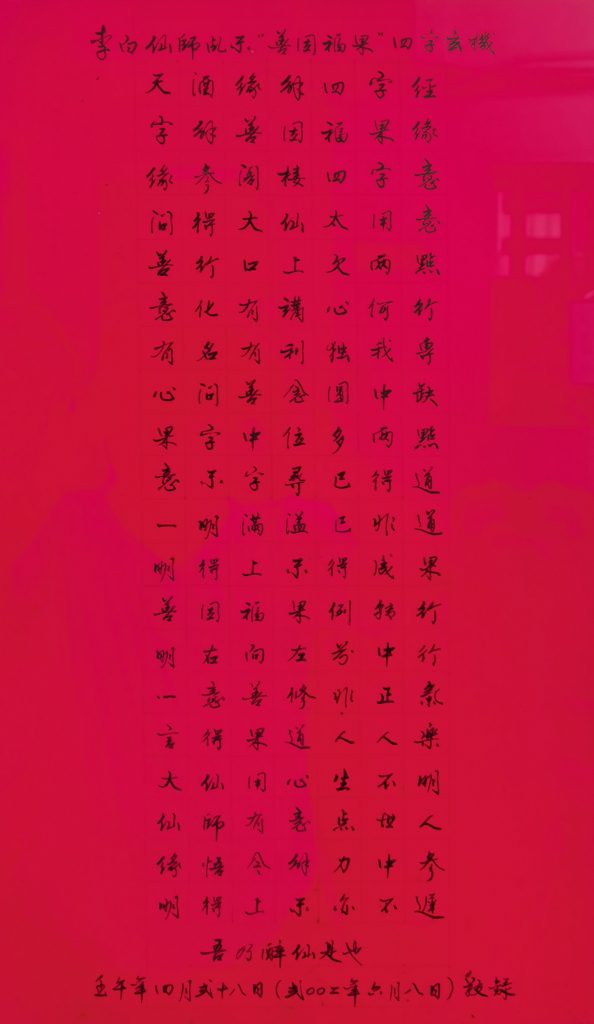 李白仙師乩示“善因福果”四字玄機
天酒缘解四字經
字解善因福果缘
缘参阁楼四字意
问得大仙太用意
善行口上欠两點
意化有講心何行
有名有利独我專
心问善念圆中缺
果字中位多两點
意示字尋已得道
一明满溢已非道
明得上示得成果
善因福果例转行
明右向左中行
一意善修非正氣
言得果道人人樂
大仙用心生不明
仙師有意点世人
缘悟今解力中参
明得上示亦不遲
吾乃醉仙是也
壬午年四月弍十八日（弍00二年六月八日）敬録